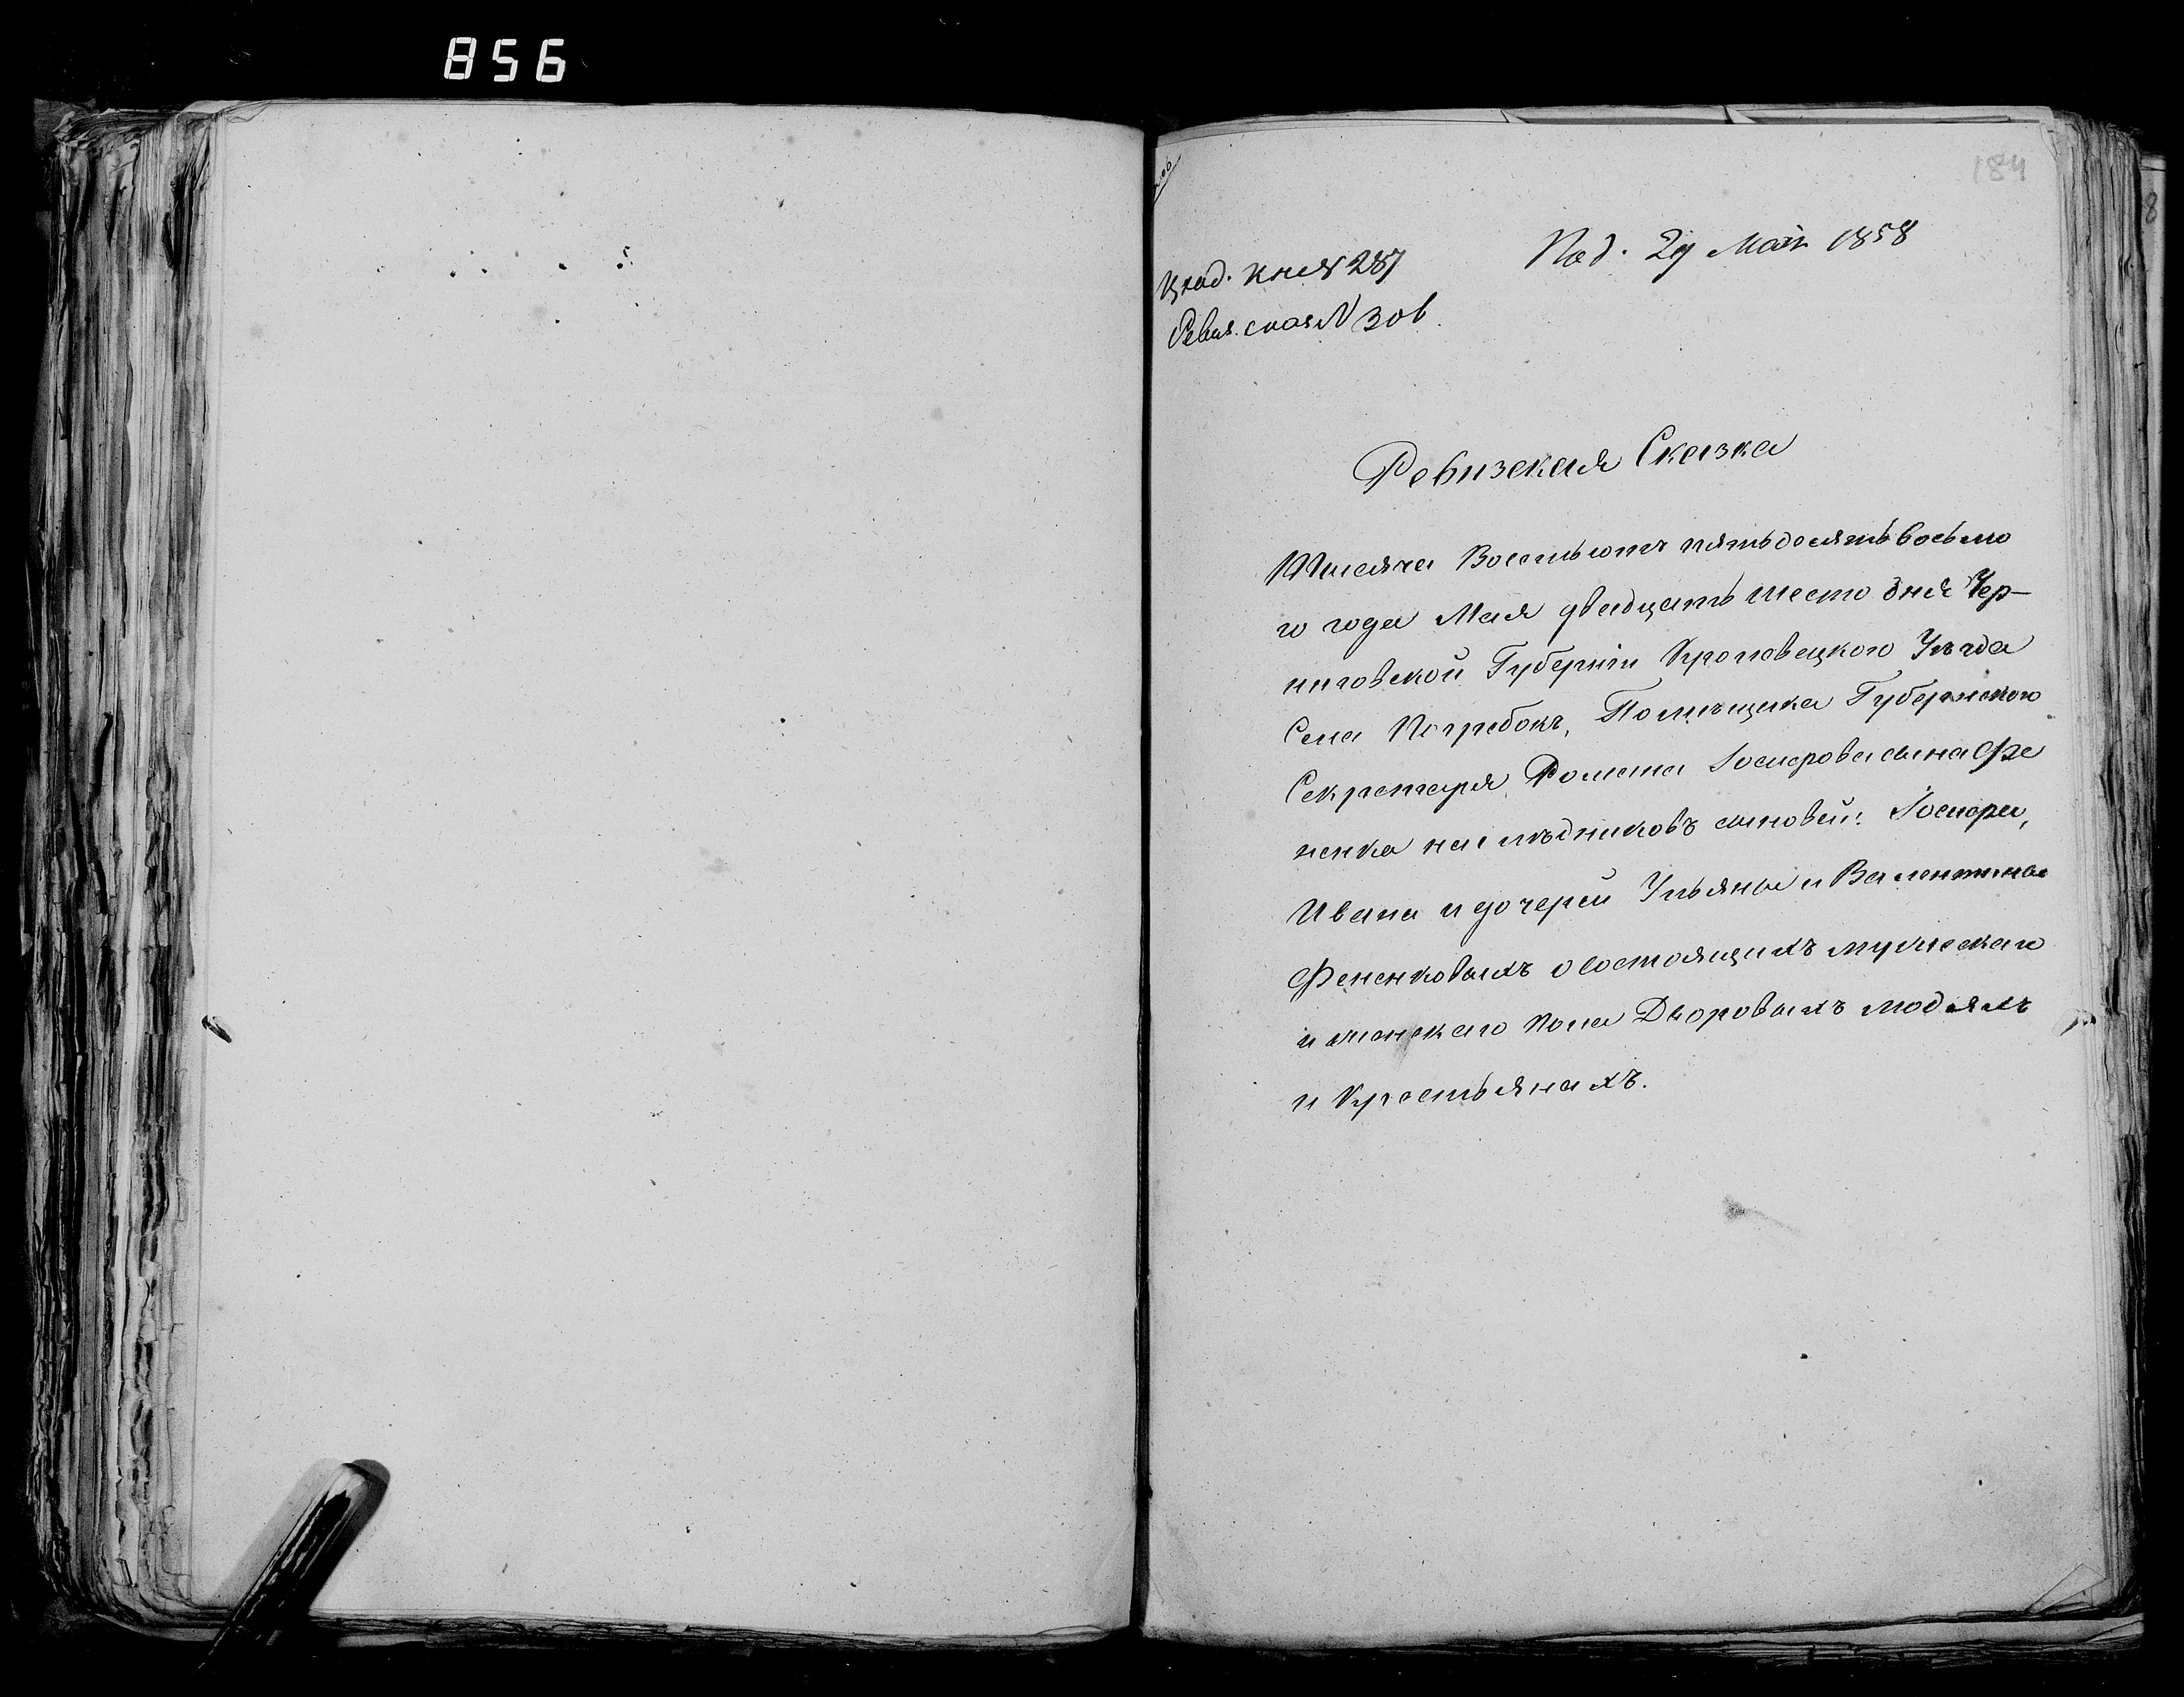 856
184
Под. 29 Мая 1858
Кн. № 287
Ревиз. сказ. № 306
Ревизская Сказка
Тысяча Восемьсотъ пятьдесятъ восьмо
го года Мая двадцать шесто дня Чер-
ниговской Губерніи Кролевецкого Уѣзда
Села Погребокъ, Помѣщика Губернского
Секретаря Романа Іосифова сына Фе
ненка наслѣдниковъ сыновей: Іосифа,
Ивана и дочерей Ульяны и Валентины
Фененковыхъ о состоящихъ мужескаго
и женскаго пола Дворовыхъ людяхъ
и Крестьянахъ.